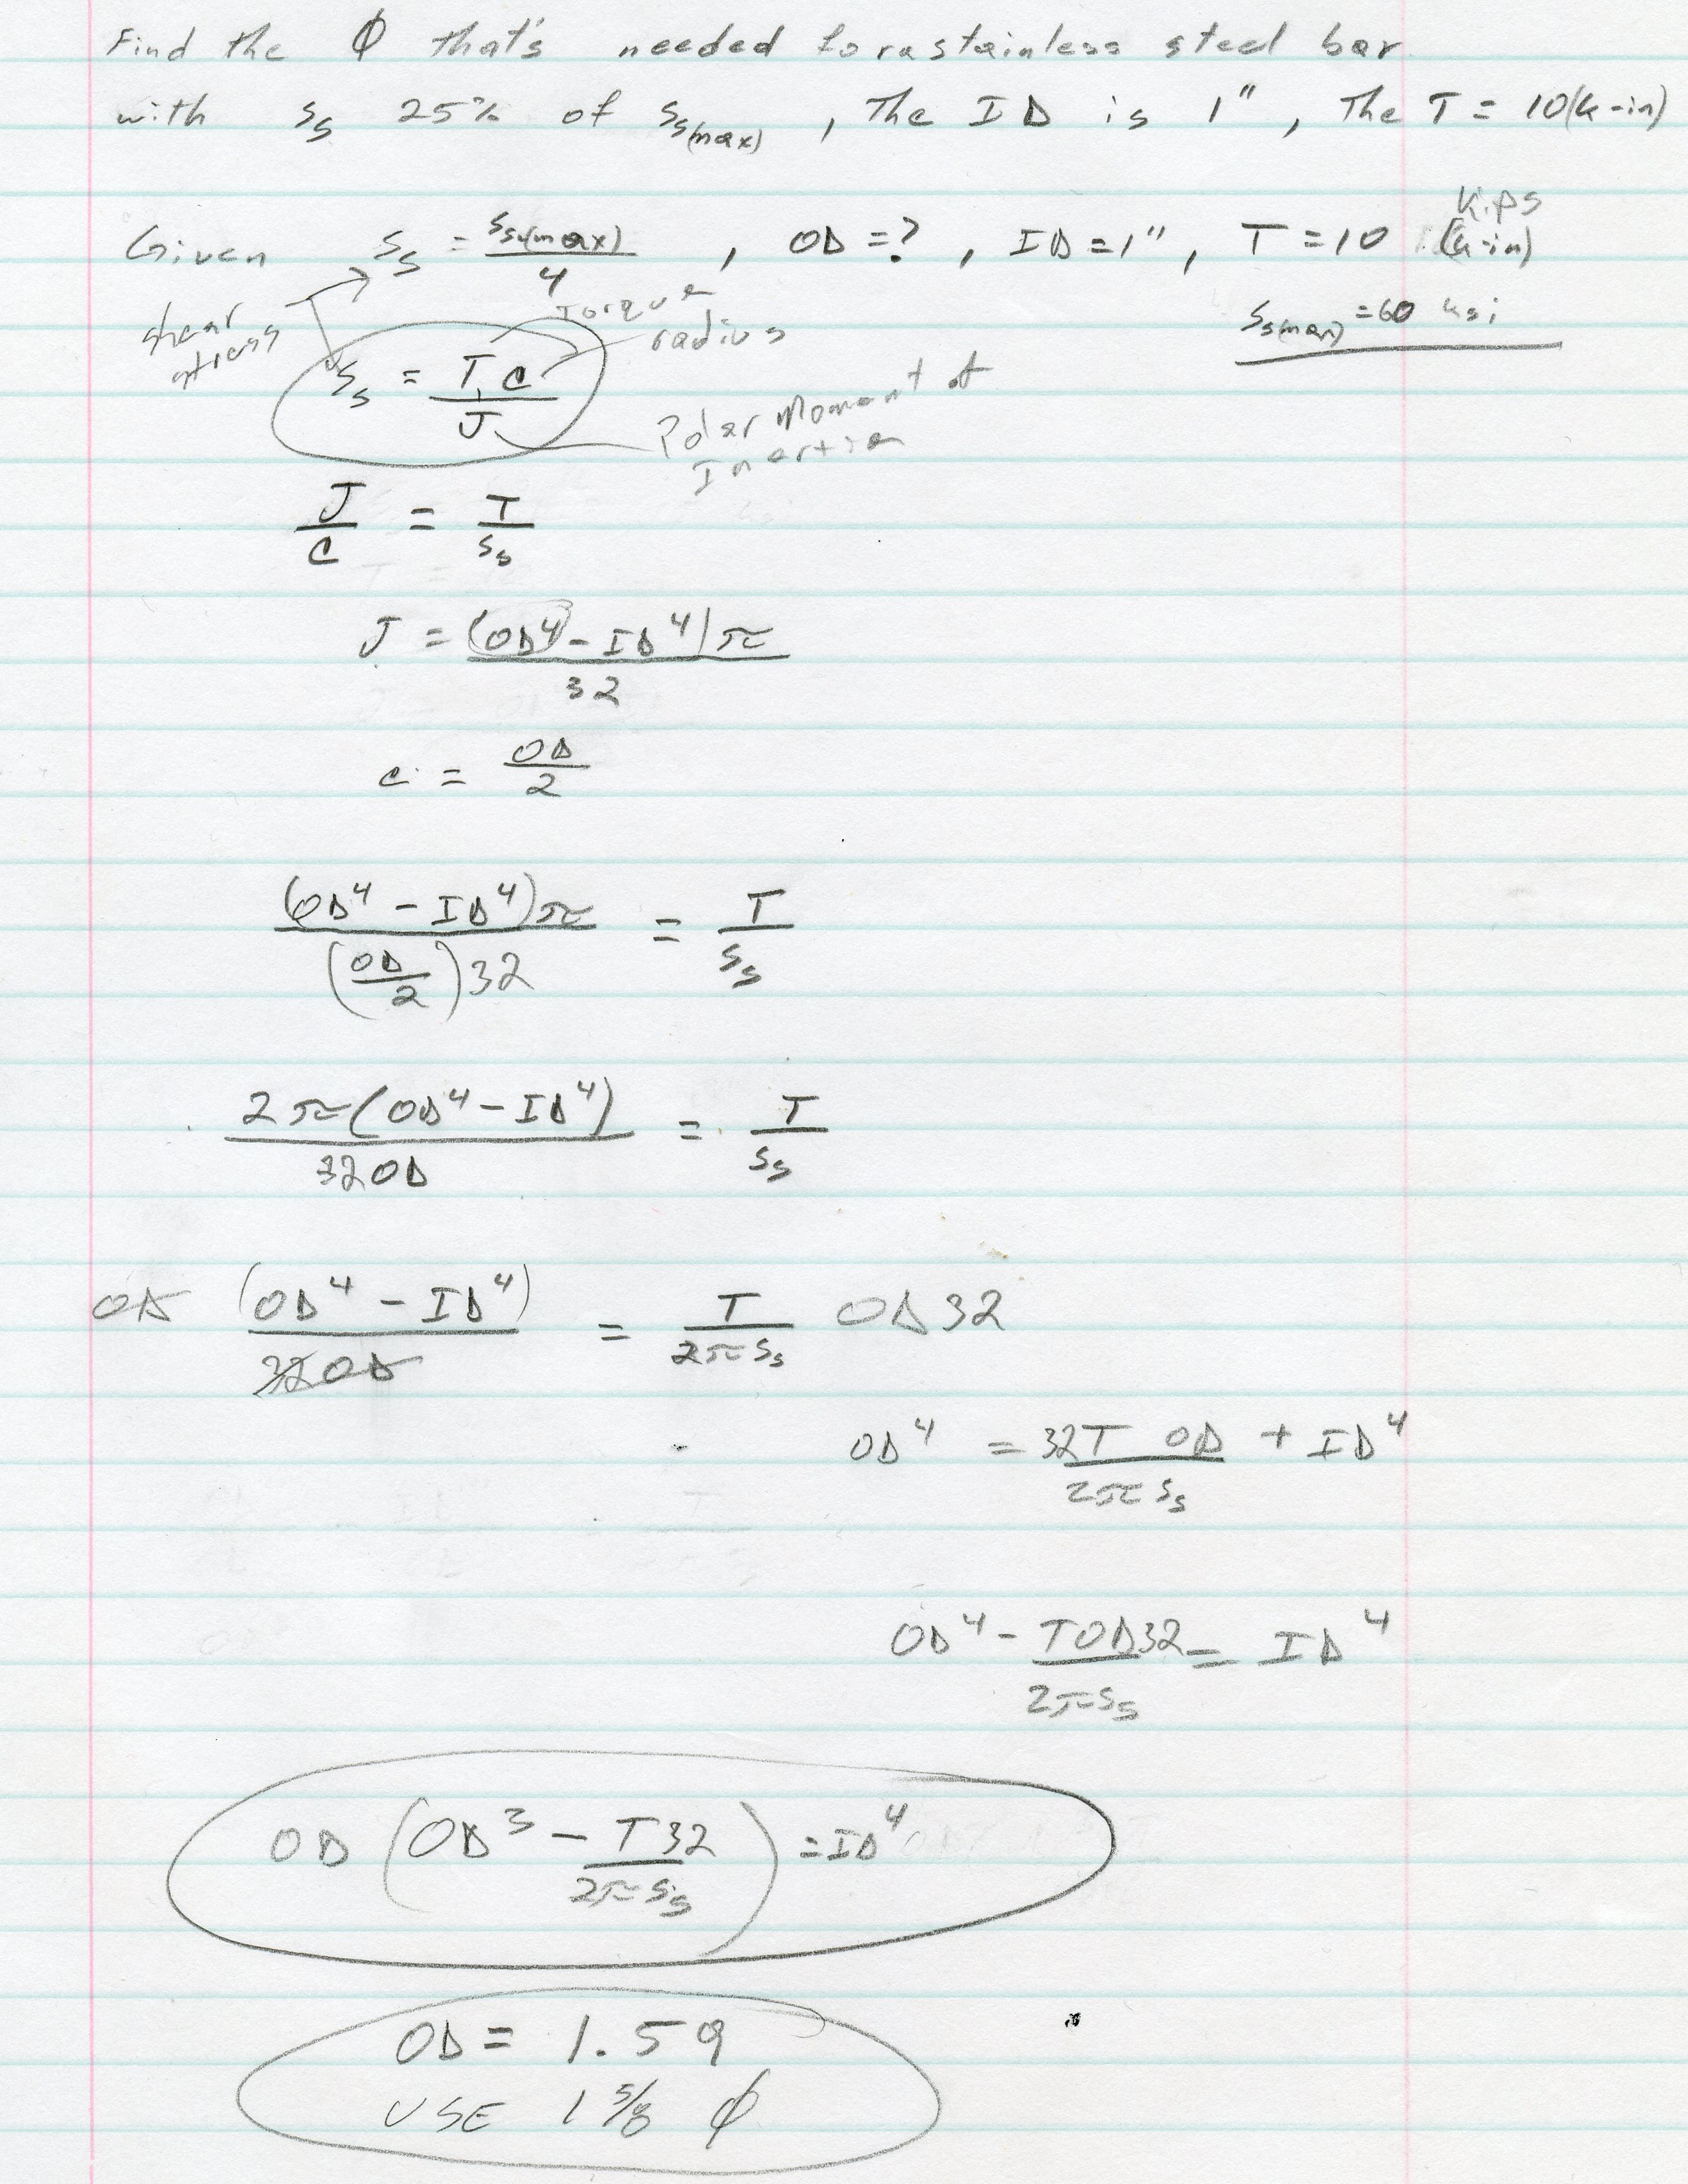 Find the Φ that's needed for a stainless steel bar
with Ss 25% of Ss(max), The ID is 1", The T = 10(k-in)
Kips
Given Ss = Ss(max)/4, OD = ?, ID = 1", T = 10 (k-in)
Ss(max) = 60 ksi
shear stress
Torque
radius
Ss = T C / J
Polar Moment of
Inertia
J/C = T/Ss
J = (OD⁴ - ID⁴)π / 32
C = OD/2
(OD⁴ - ID⁴)π / (OD/2)32 = T/Ss
2π(OD⁴ - ID⁴) / 32OD = T/Ss
OD (OD⁴ - ID⁴) / 32OD = T/2πSs OD32
OD⁴ = 32T OD / 2πSs + ID⁴
OD⁴ - TOD32 / 2πSs = ID⁴
OD (OD³ - T32 / 2πSs) = ID⁴
OD = 1.59
USE 1 5/8 Φ